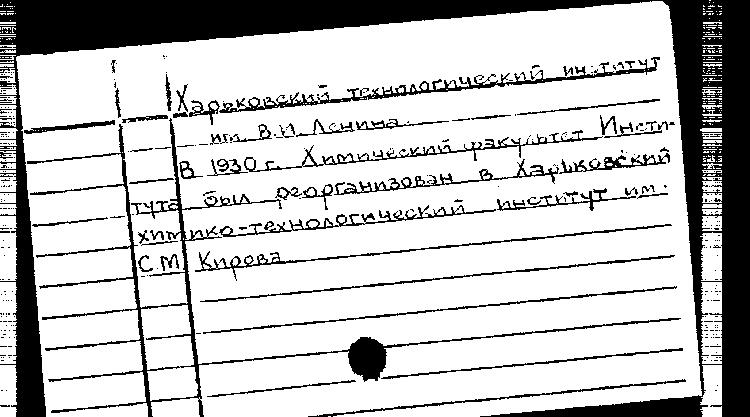 Харьковский технологический институт
им. В.И. Ленина.
В 1930 г. Химический факультет Инсти-
тута был реорганизован в Харьковский
химико-технологический институт им.
С.М. Кирова